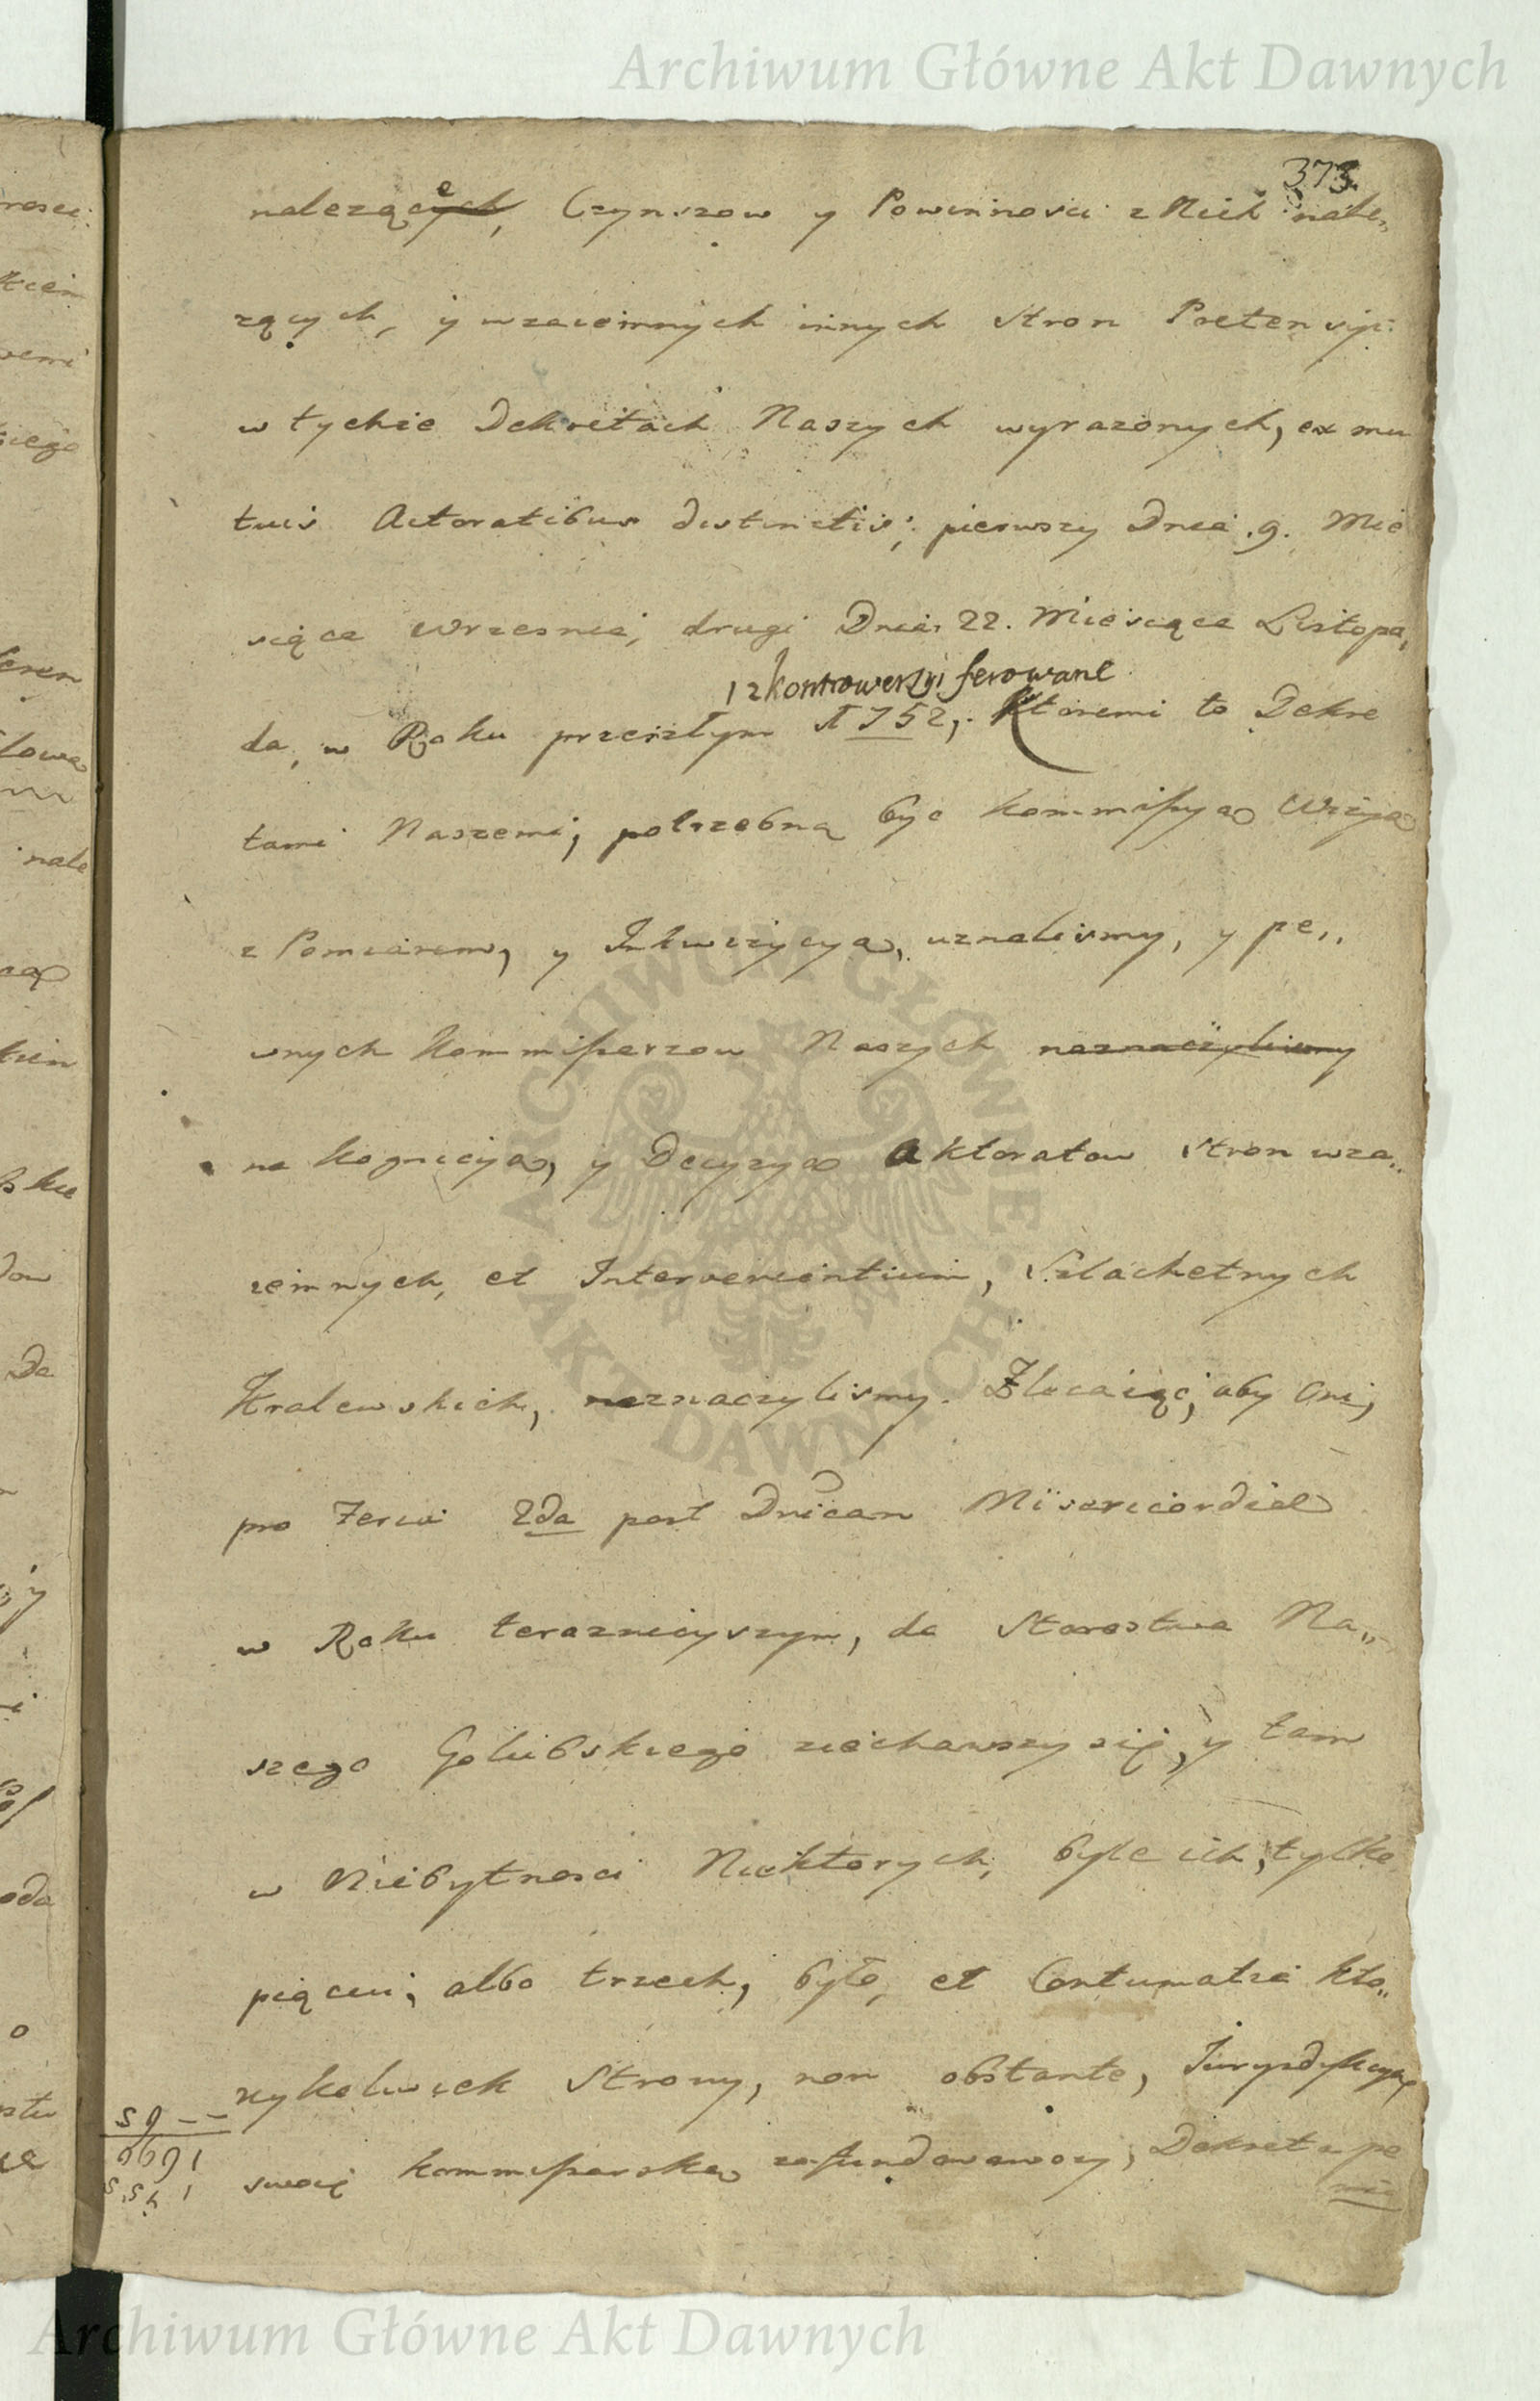 Archiwum Główne Akt Dawnych
373
należące, Czynszow y Powinnosci z Nich nale„
żących, y wzaiemnych innych Stron Pretensyi
w tychże Dekretach Naszych wyrażonych, ex mu
tuis Actoratibus distinctis; pierwszy Dnia .9. Mie
siąca Wrzesnia, drugi Dnia 22. Miesiąca Listopa„
z kontrowersyi ferowane
da, w Roku przeszłym 1752, Ktoremi to Dekre
tami Naszemi, potrzebną byc Kommissyą Wizyą
z Pomiarem, y Inkwizycyą, uznalismy, y pe„
wnych Kommissarzow Naszych naznaczylismy
na Kognicyą, y Decyzyą Aktoratow Stron wza„
iemnych, et Intervenientium, Szlachetnych
Kralewskich, naznaczylismy. Zlecaiąc, aby Oni,
pro Feria 2da post Dnicam Misericordiae
w Roku teraznieyszym, do Starostwa Na„
szego Golubskiego ziechawszy się, y tam
w Niebytnosci Niektorych, byle ich, tylko
pięciu, albo trzech, było, et Contumatia kto„
rykolwiek Strony, non obstante, Jurysdykcyą
swoię Kommissarską zafundowawszy, Dekreta pe
ARCHIWUM GŁÓWNE AKT DAWNYCH
Archiwum Główne Akt Dawnych